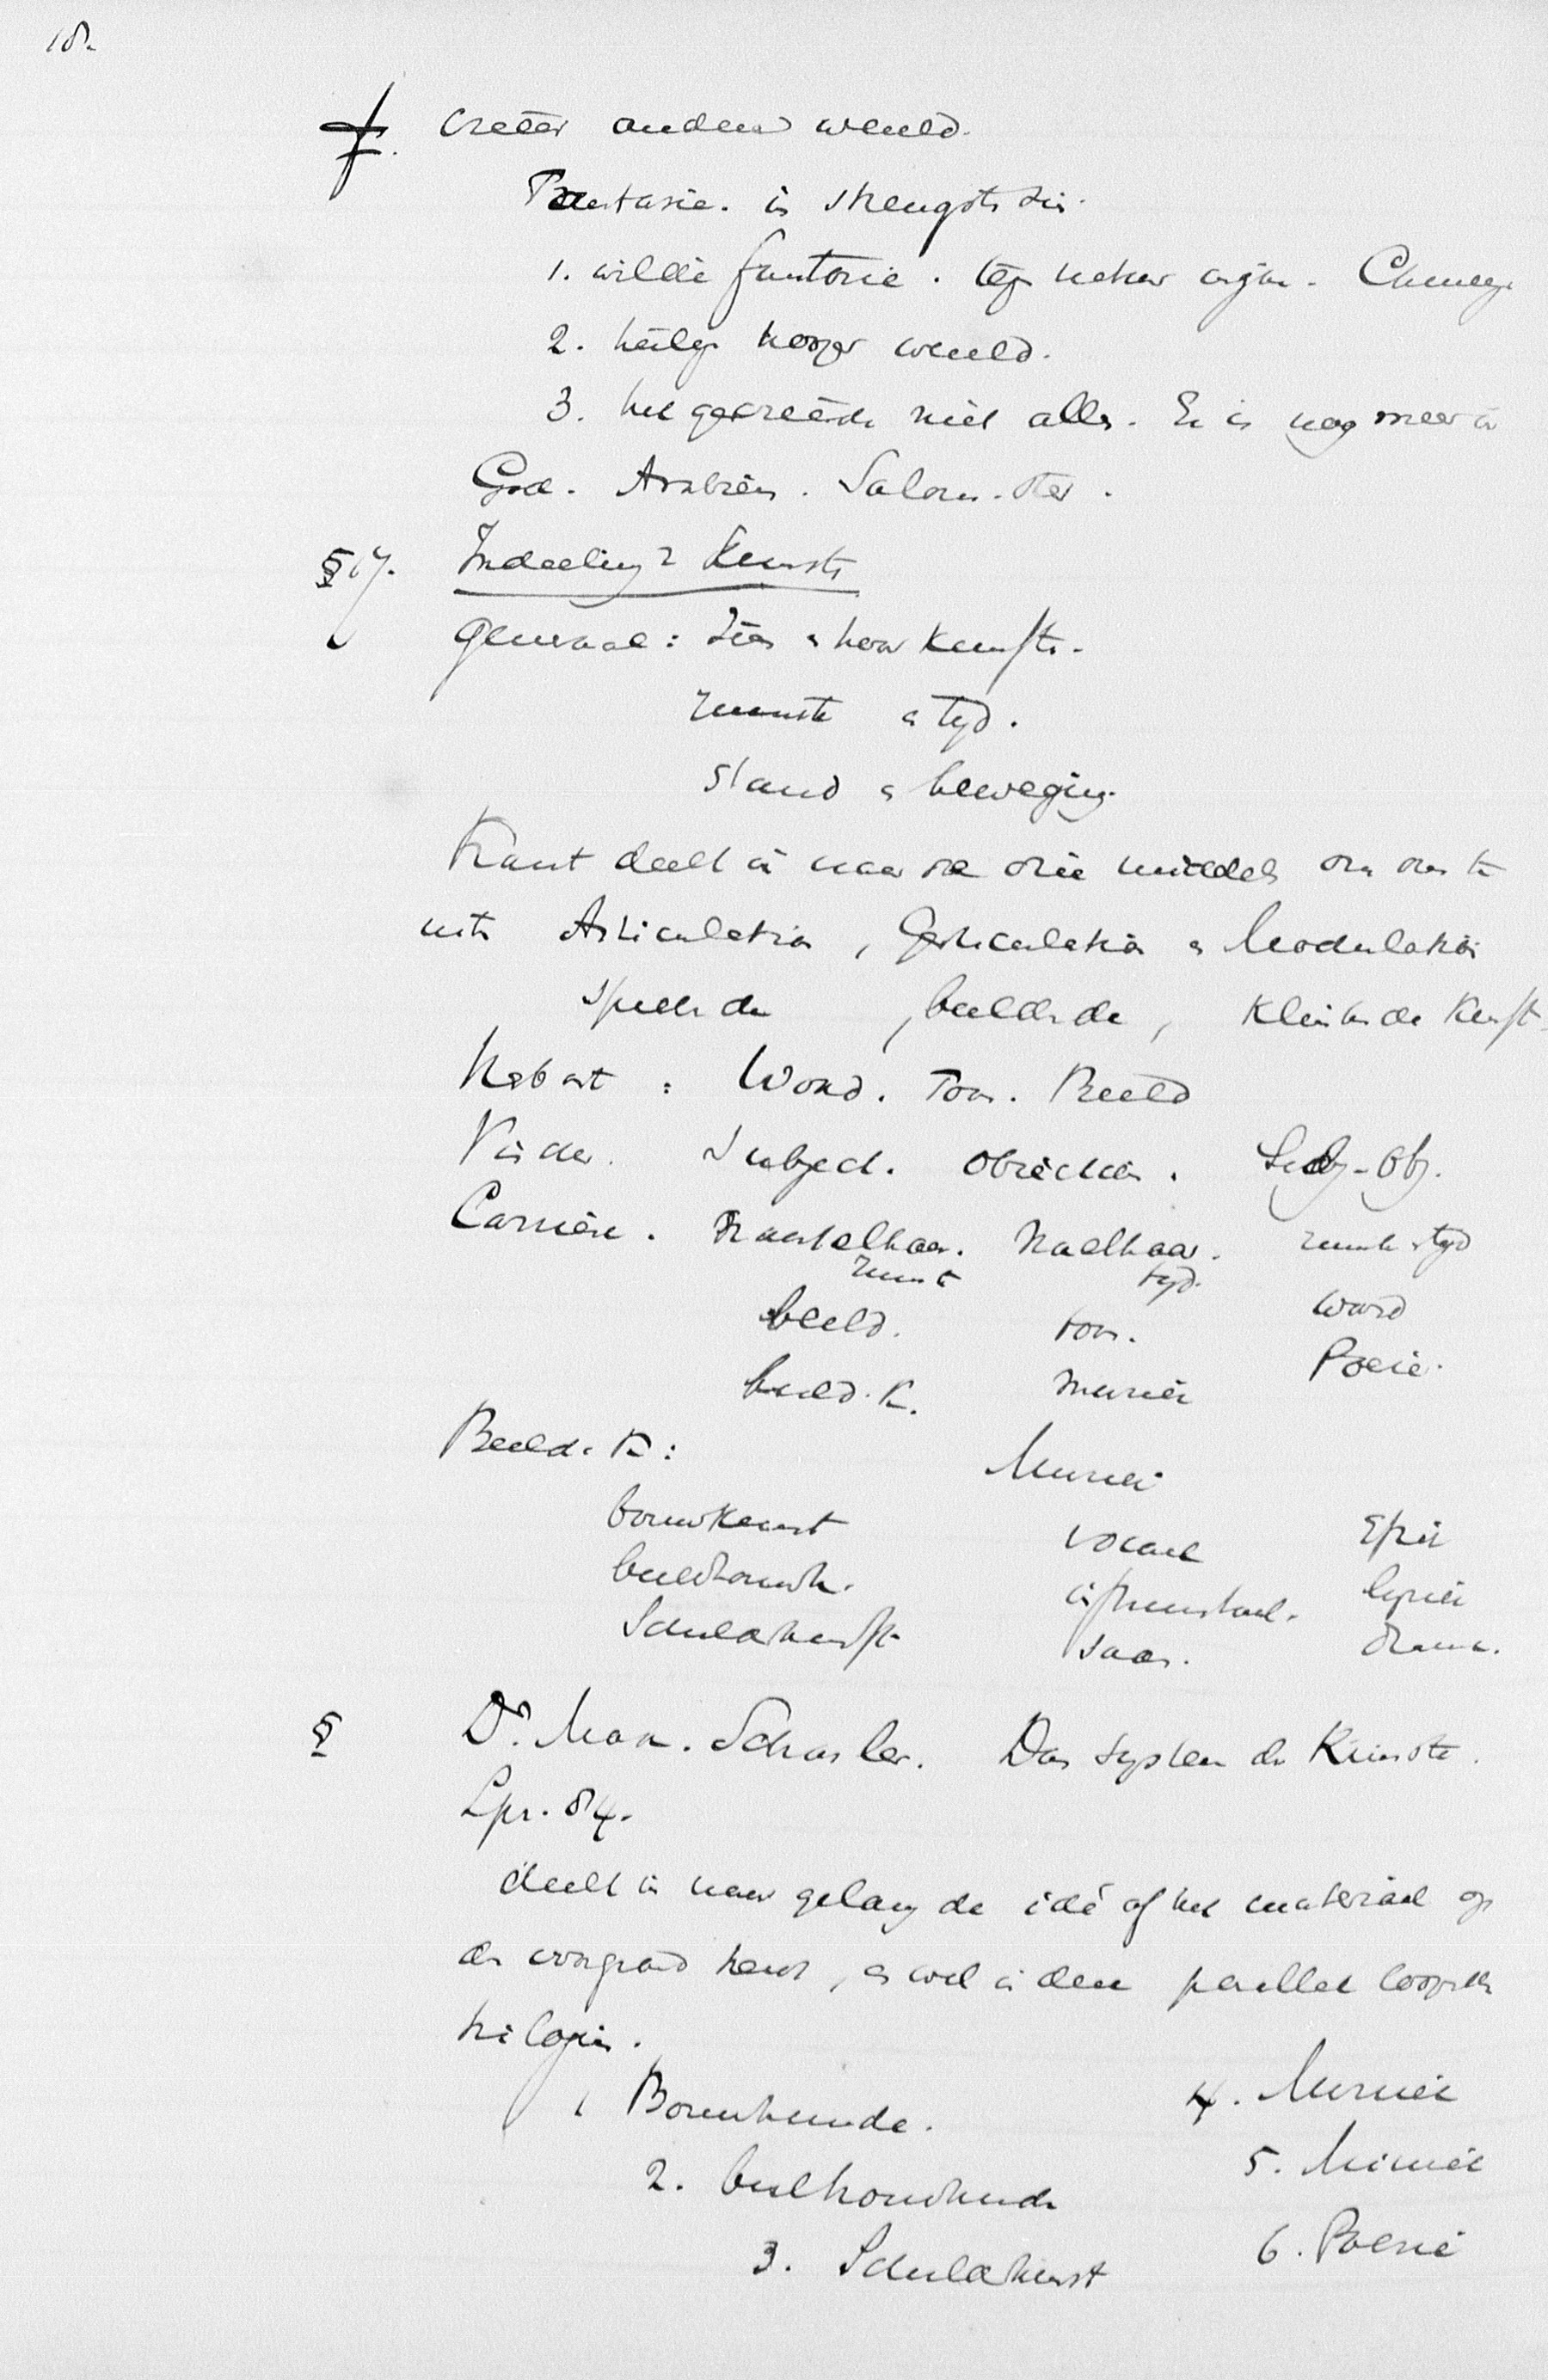 18.
f. creëer andere wereld.
Fantasie. in strengste zin.
1. wilde fantasie. teg
2. heilige hooger wereld.
3. het gecreëerde niet alles. Er is nog meer in
God. Arabiën. Salom.
§ 17. Indeeling d Kunst
Generaal: zien & hoor Kunst.
ruimte & tijd.
stand & beweging.
Kant deelt in naar de drie middelen om ons te
uiten Articulatie, Gesticulatie & Modulatie
sprekende, beeldende, klinkende Kunst
Woord. Toon. Beeld
Subject. Objectie. Subj-Obj.
Carrière. Tastelbaar. ruimte & tijd
ruimte tijd.
beeld. toon. woord
beeld. K. muziek Poëzie.
Beeld. K: Muziek
bouwkunst vocaal Epiek
beeldhouwk. instrumentaal. lyriek
Schilderkunst saam. drama.
§ Dr. Max. Schasler. Das System der Künste.
Lpz. 84.
deelt in naar gelang de idé of het materiaal op
den voorgrond komt, & wel in deze parallel loopende
trilogie.
1 Bouwkunde. 4. Muziek
2. beeldhouwkunde 5. Mimiek
3. Schilderkunst 6. Poesie